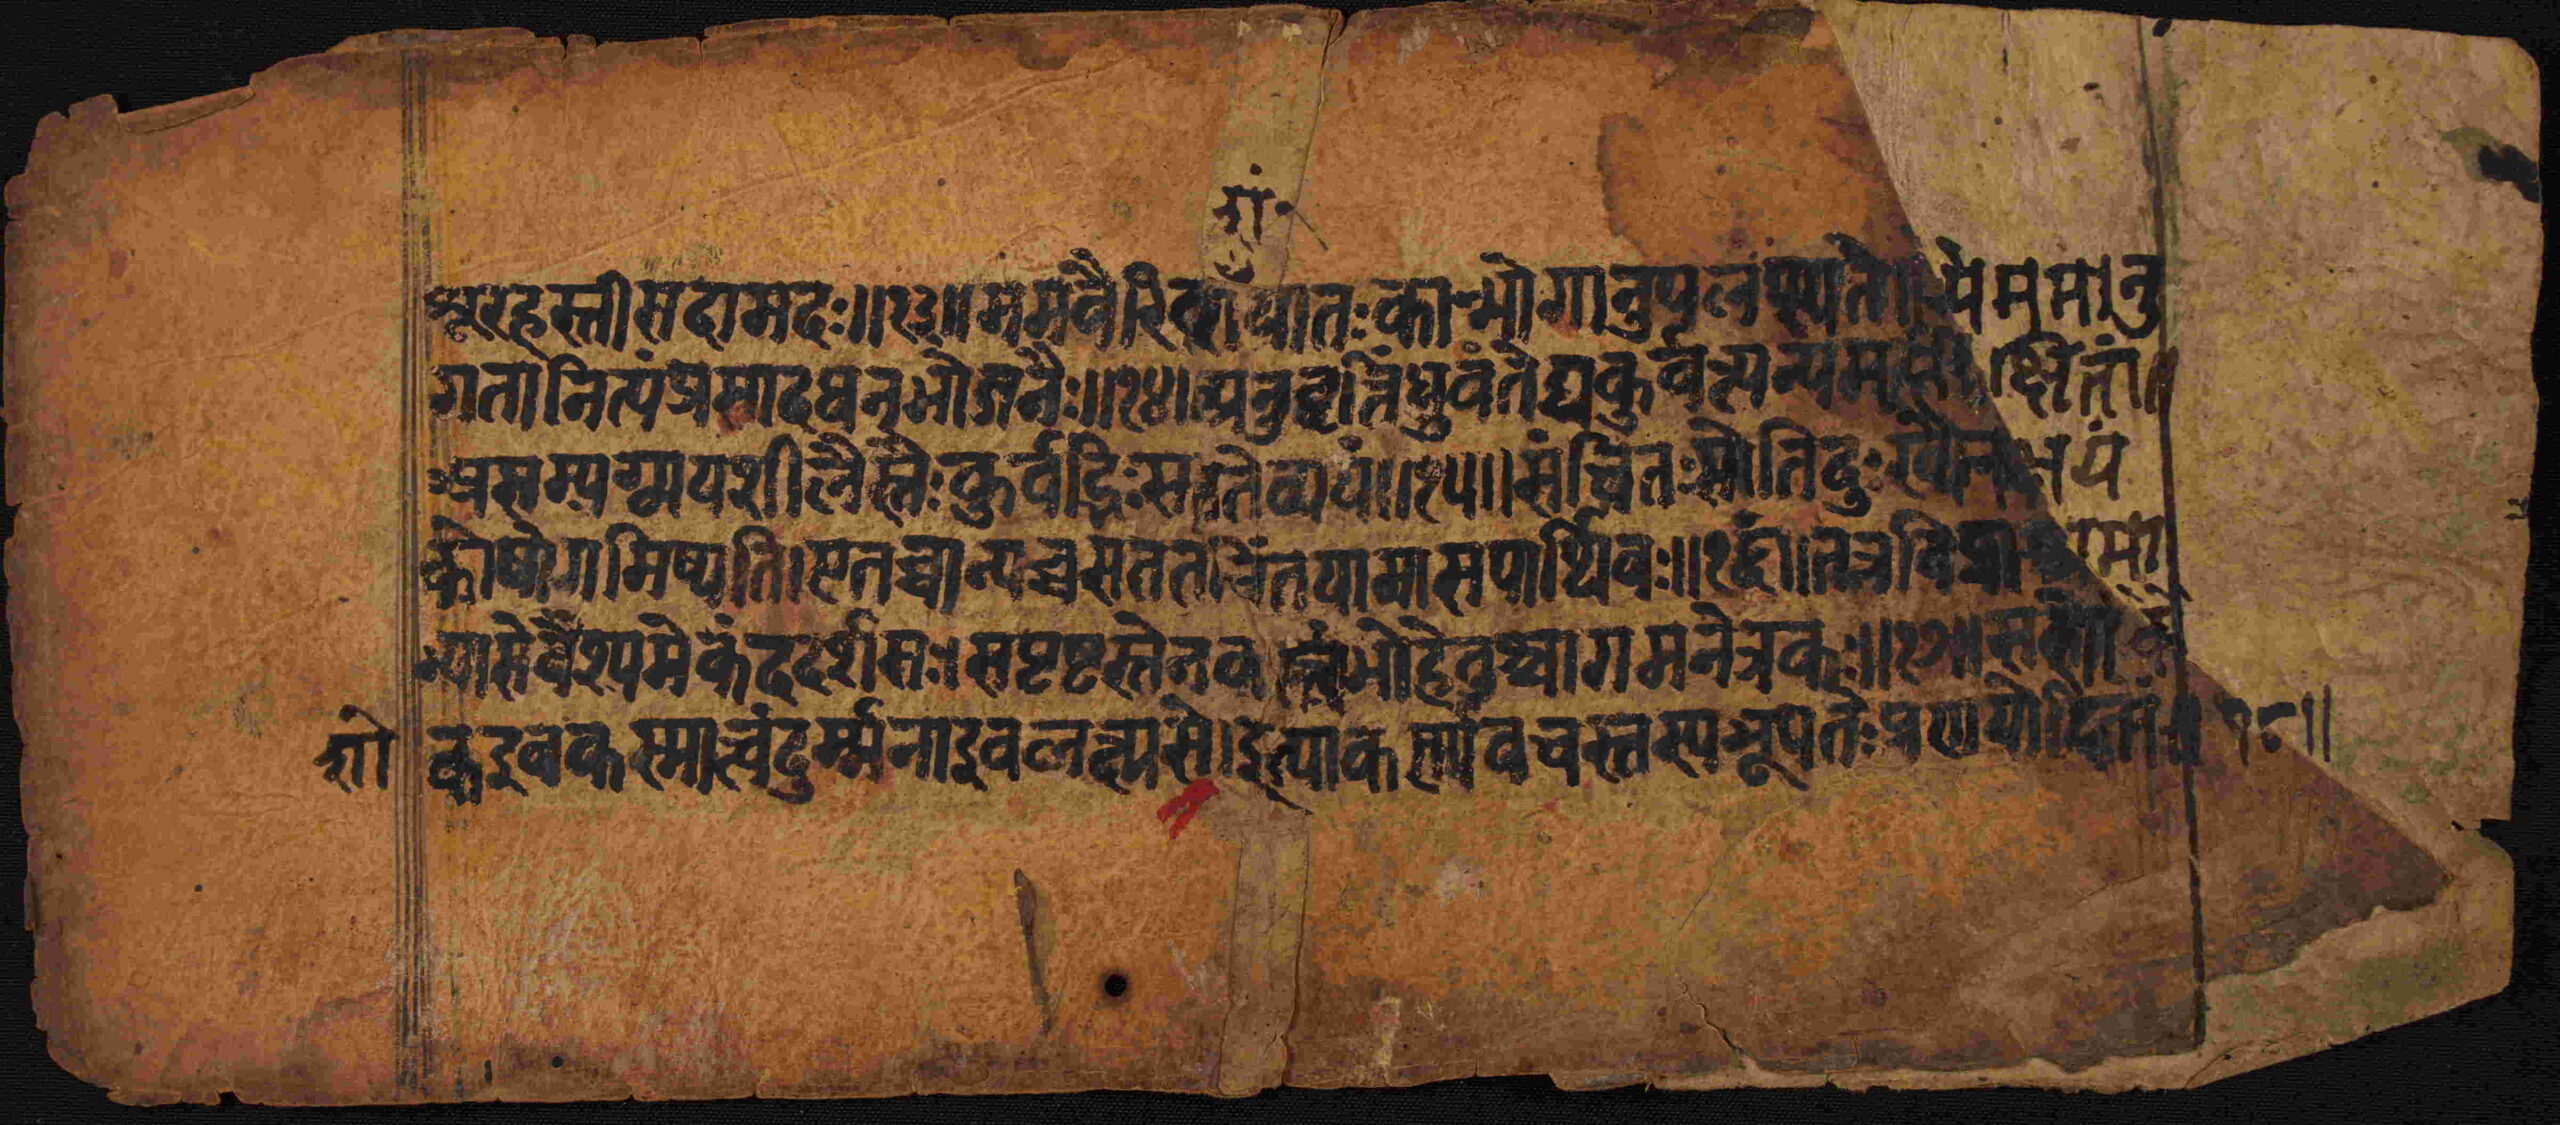 शां
शूरहस्तीसदामदः॥१३॥ममवैरिवशंयातःकान्भोगानुपलप्स्यते।येममानु
गतानित्यंप्रसादधनभोजनैः॥१४॥अनुवृत्तिंध्रुवंतेद्यकुर्वन्त्यन्यमहीभृतां॥
असम्यग्व्ययशीलैस्तैःकुर्वद्भिःसततंव्ययं॥१५॥संचितःसोतिदुःखेनक्षयं
कोषोगमिष्यति।एतच्चान्यच्चसततंचिंतयामासपार्थिवः॥१६॥तत्रविप्राश्रमा
भ्यासेवैश्यमेकंददर्शसः।सपृष्टस्तेनकस्त्वंभोहेतुश्चागमनेत्रकः॥१७॥सशो
शो कइवकस्मात्त्वंदुर्म्मनाइवलक्ष्यसे।इत्याकर्ण्यवचस्तस्यभूपतेःप्रणयोदितं॥१८॥